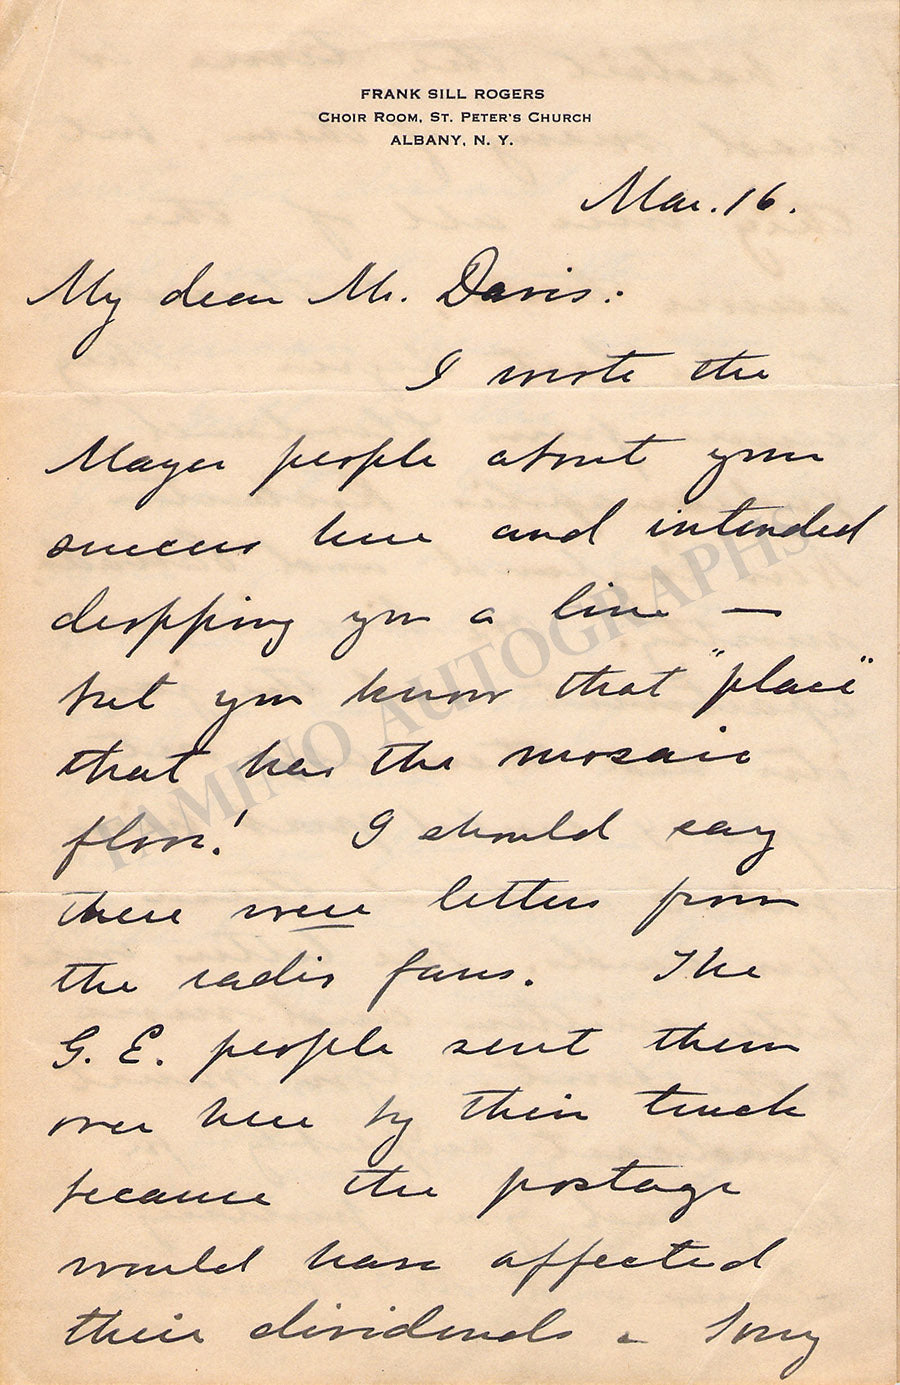 FRANK SILL ROGERS
CHOIR ROOM, ST. PETER'S CHURCH
ALBANY, N. Y.
Mar. 16.
My dear Mr. Davis:
I wrote the
Mayer people about your
success here and intended
dropping you a line —
but you know that "place"
that has the mosaic
floor! I should say
there were letters from
the radio fans. The
G. E. people sent them
over here by their truck
because the postage
would have affected
their dividends -
TAMINO AUTOGRAPHS